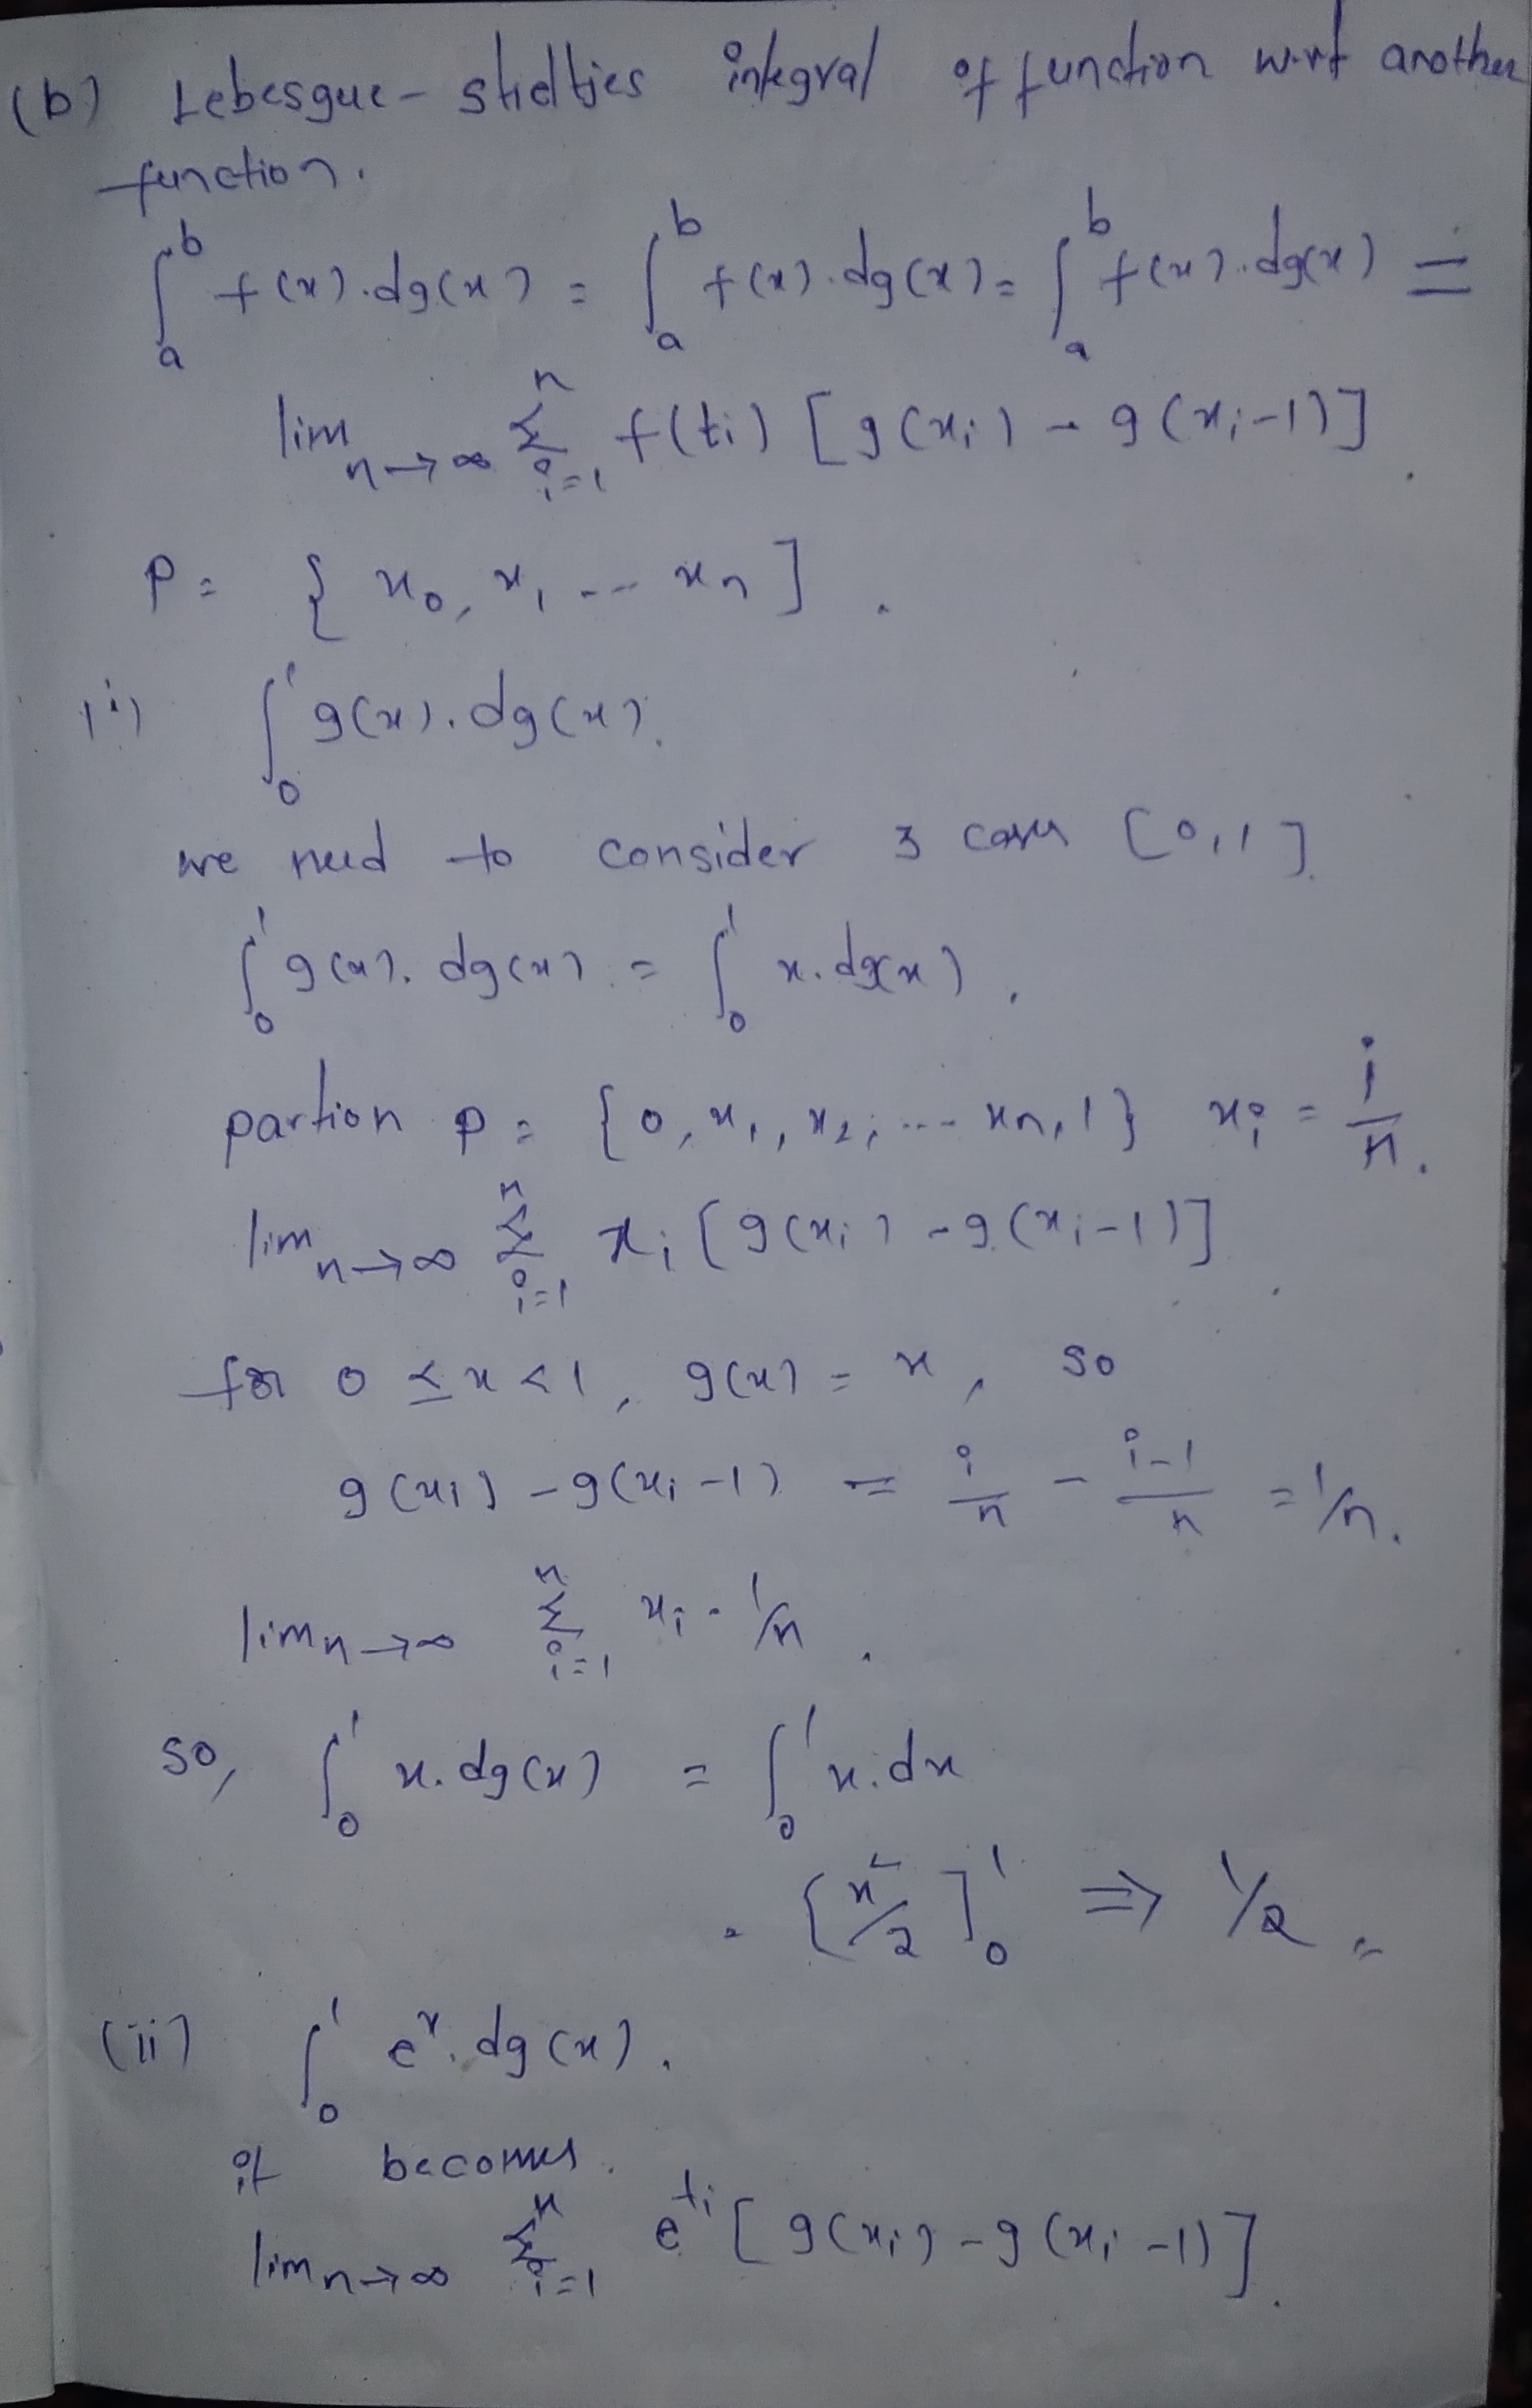 (b) Lebesgue - stieltjes integral of function w.r.t another
function.
∫ₐᵇ f(x).dg(x) = ∫ₐᵇ f(x).dg(x) = ∫ₐᵇ f(x).dg(x) =
lim n→∞ Σⁿ i=1 f(ti) [g(xi) - g(xi-1)]
P = { x0, x1 --- xn ] .
(i) ∫₀¹ g(x).dg(x).
we need to consider 3 cases [0,1].
∫₀¹ g(x).dg(x) = ∫₀¹ x.dg(x).
partion P = {0, x1, x2, ---- xn, 1} xi = i/n.
lim n→∞ Σⁿ i=1 xi [g(xi) - g(xi-1)]
for 0 ≤ x < 1, g(x) = x, so
g(xi) - g(xi-1) = i/n - i-1/n = 1/n.
lim n→∞ Σⁿ i=1 xi . 1/n .
so, ∫₀¹ x.dg(x) = ∫₀¹ x.dx
= [x²/2]₀¹ ⇒ 1/2 =
(ii) ∫₀¹ eˣ.dg(x).
it becomes.
lim n→∞ Σⁿ i=1 e^ti [g(xi) - g(xi-1)].